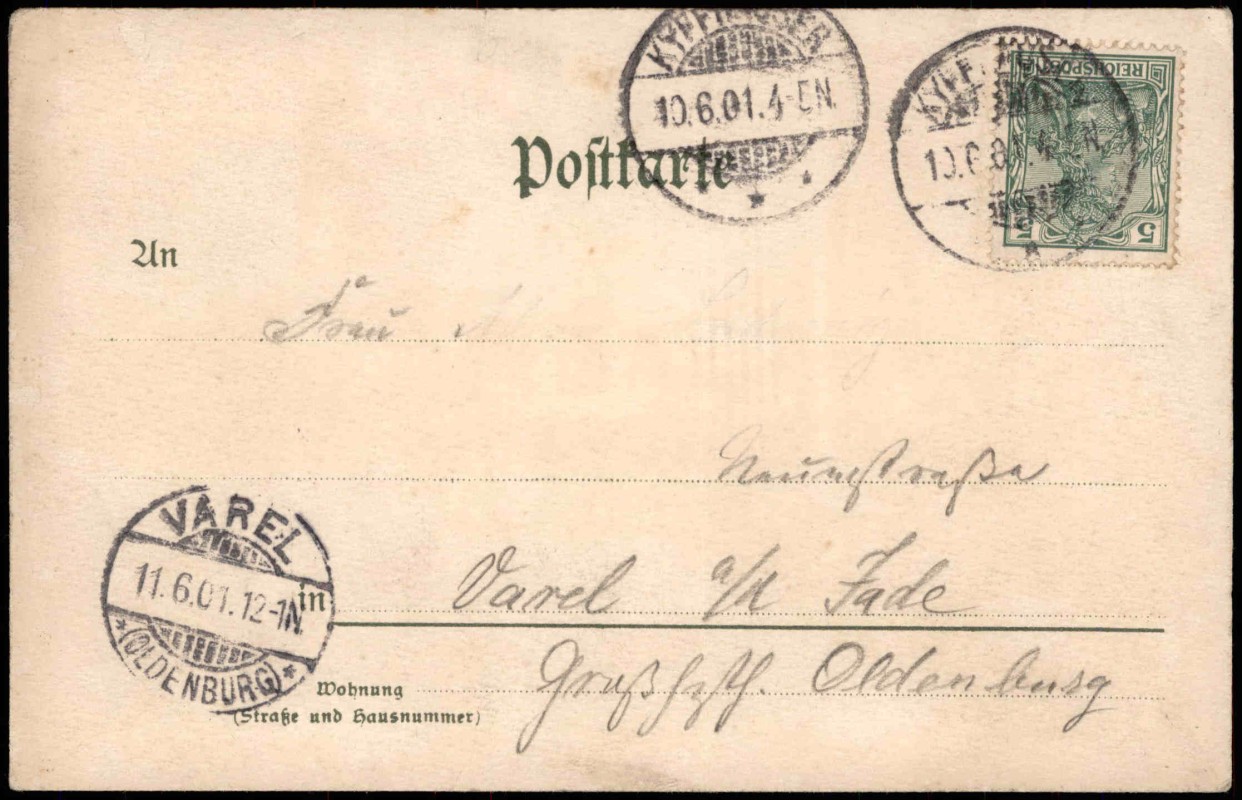 KYFFHÄUSER
10.6.01.4-5N.
KYFFHÄUSER
10.6.01.4-5N.
REICHSPOST
5 5
Postkarte
An
Frau
Neumstraße
VAREL
11.6.01.12-1N.
*(OLDENBURG)*
in Varel a/d Jade
Großhzth. Oldenburg
Wohnung
(Straße und Hausnummer)